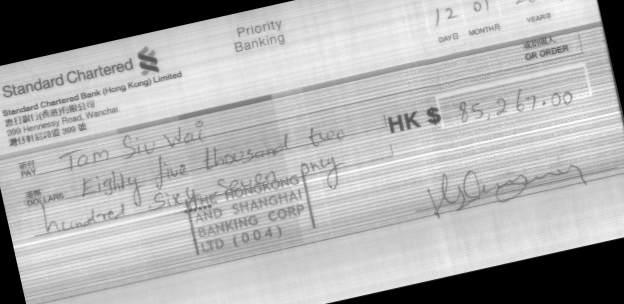 Standard Chartered
Priority
Banking
12 01
DAY日 MONTH月 YEAR年
Standard Chartered Bank (Hong Kong) Limited
渣打銀行(香港)有限公司
399 Hennessy Road, Wanchai
灣仔軒尼詩道 399 號
或持票人
OR ORDER
祈付
PAY
Tam Siu Wai
HK $ 85,267.00
港幣
DOLLARS
Eighty five thousand two
hundred sixty seven only
THE HONGKONG
AND SHANGHAI
BANKING CORP
LTD (004)